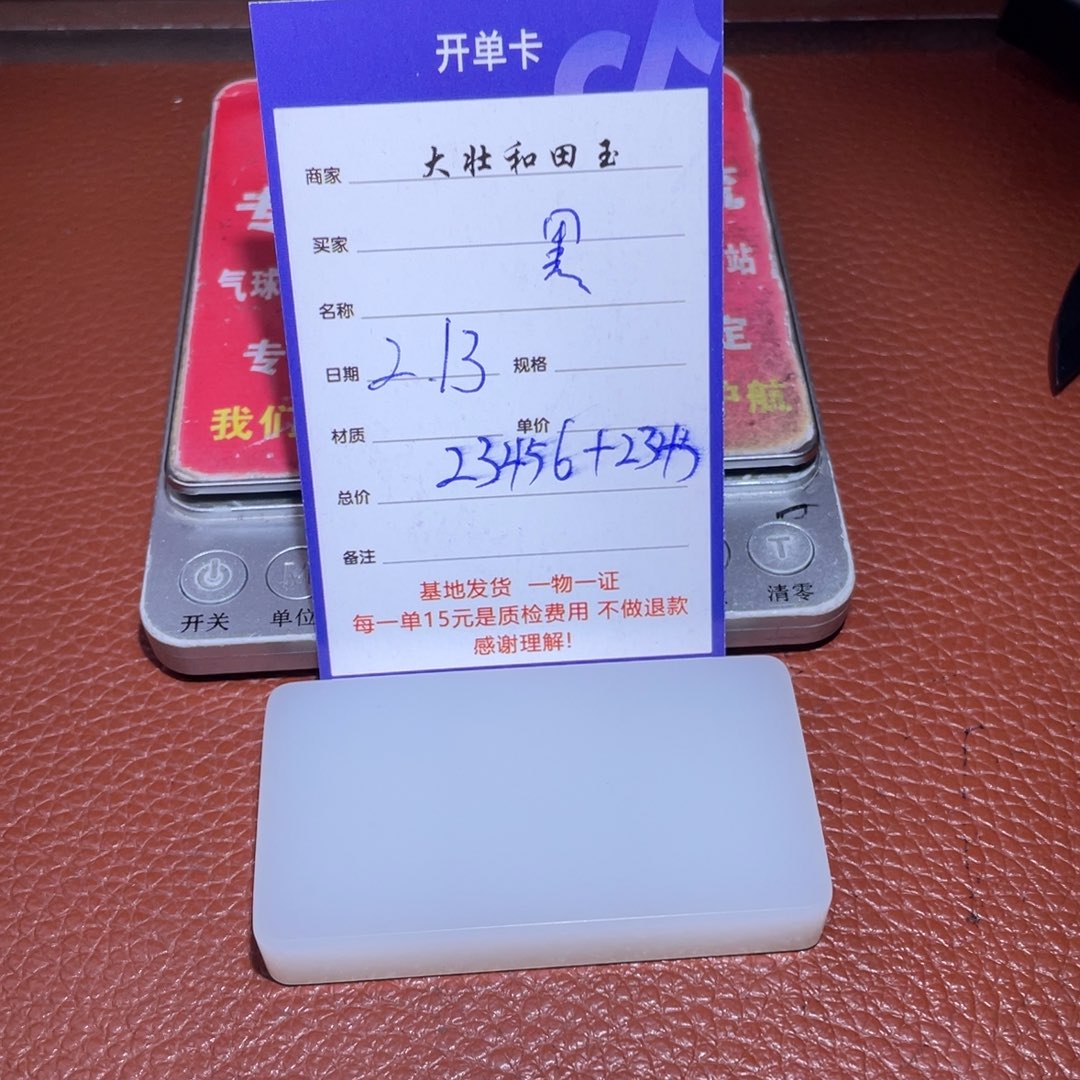 开单卡
商家 大壮和田玉
买家 黑
名称
日期 2.13 规格
材质 单价
23456+2343
总价
备注
基地发货 一物一证
每一单15元是质检费用 不做退款
感谢理解!
专
气球
站
专
定
我们
护航
开关
单位
T
清零